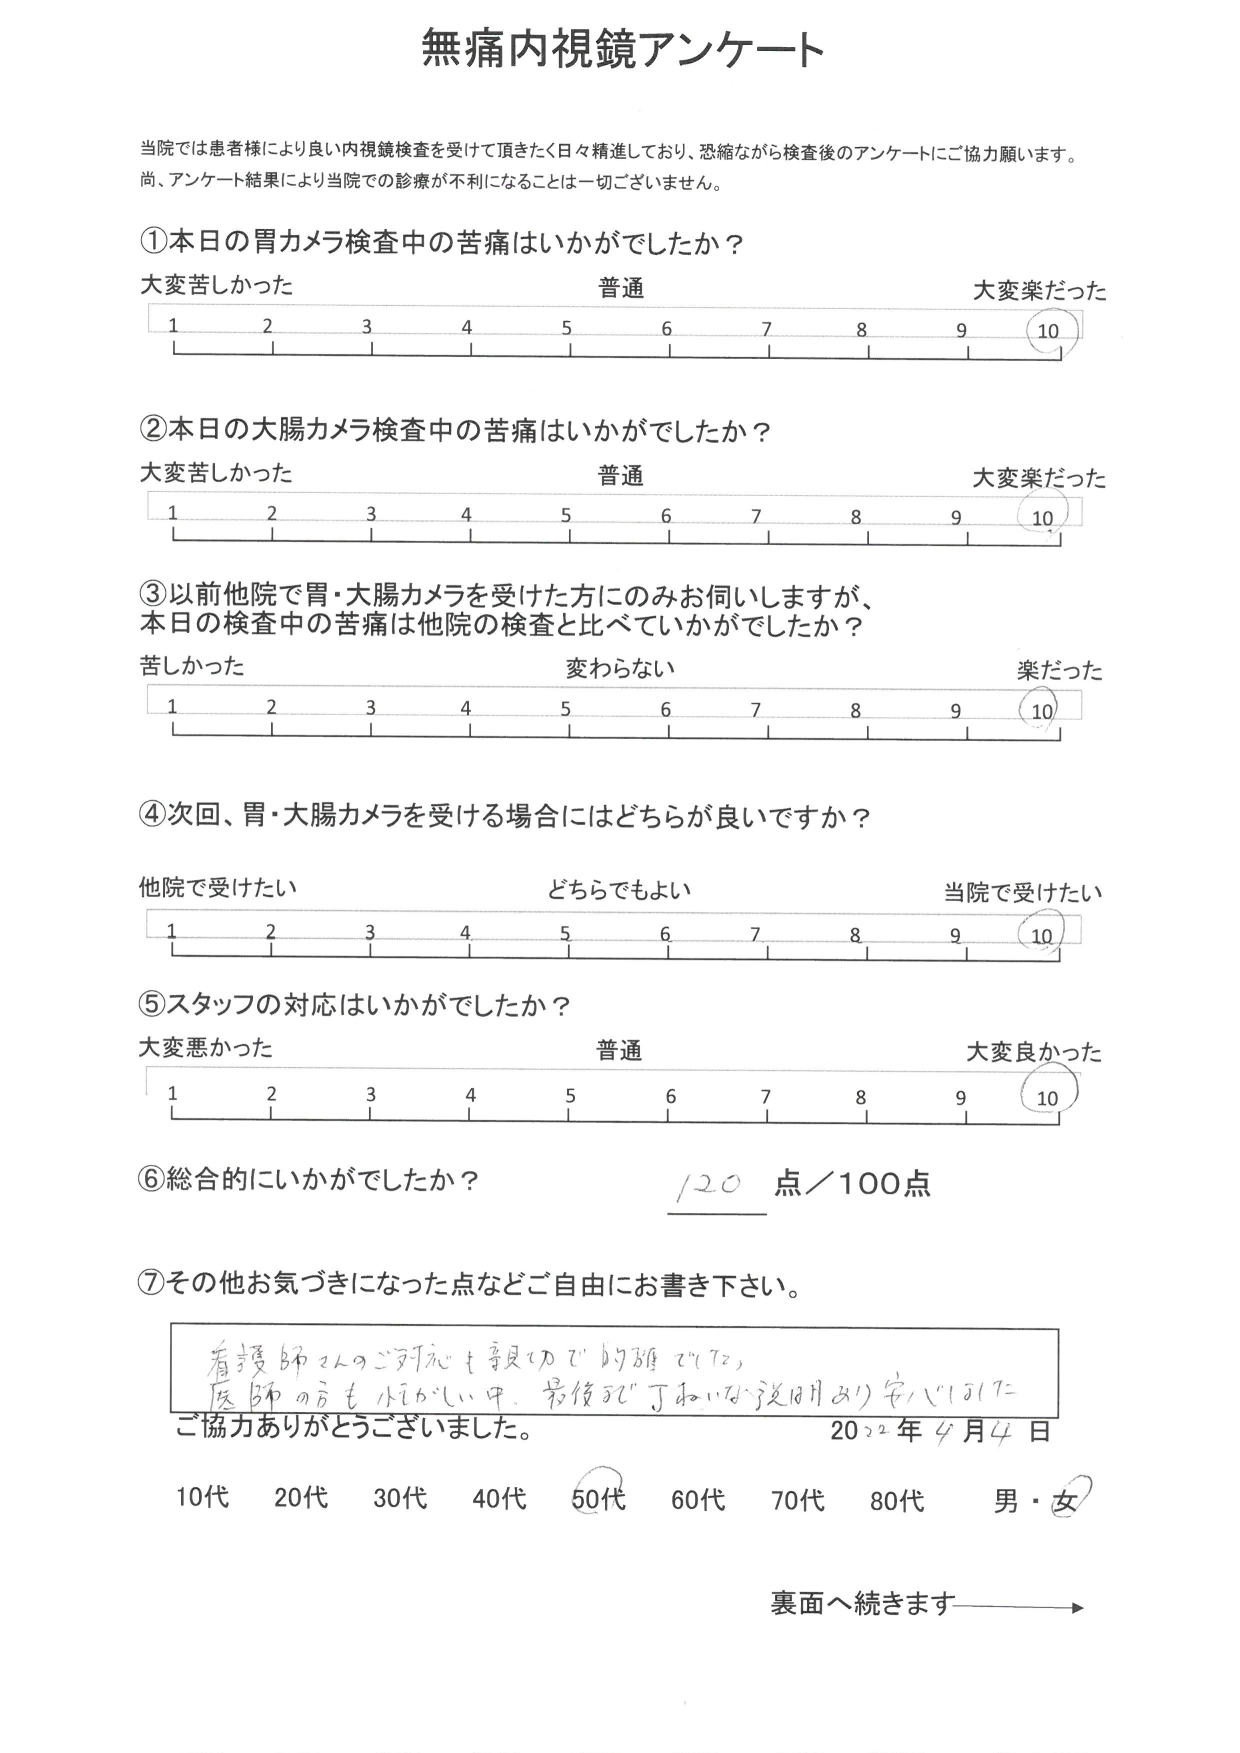 無痛内視鏡アンケート
当院では患者様により良い内視鏡検査を受けて頂きたく日々精進しており、恐縮ながら検査後のアンケートにご協力願います。
尚、アンケート結果により当院での診療が不利になることは一切ございません。
①本日の胃カメラ検査中の苦痛はいかがでしたか？
大変苦しかった 普通 大変楽だった
1 2 3 4 5 6 7 8 9 10
②本日の大腸カメラ検査中の苦痛はいかがでしたか？
大変苦しかった 普通 大変楽だった
1 2 3 4 5 6 7 8 9 10
③以前他院で胃・大腸カメラを受けた方にのみお伺いしますが、
本日の検査中の苦痛は他院の検査と比べていかがでしたか？
苦しかった 変わらない 楽だった
1 2 3 4 5 6 7 8 9 10
④次回、胃・大腸カメラを受ける場合にはどちらが良いですか？
他院で受けたい どちらでもよい 当院で受けたい
1 2 3 4 5 6 7 8 9 10
⑤スタッフの対応はいかがでしたか？
大変悪かった 普通 大変良かった
1 2 3 4 5 6 7 8 9 10
⑥総合的にいかがでしたか？ 120 点／100点
⑦その他お気づきになった点などご自由にお書き下さい。
看護師さんのご対応も親切で的確でした。
医師の方も忙がしい中、最後まで丁ねいな説明あり安心しました
ご協力ありがとうございました。 2022年 4月4日
10代 20代 30代 40代 50代 60代 70代 80代 男・女
裏面へ続きます